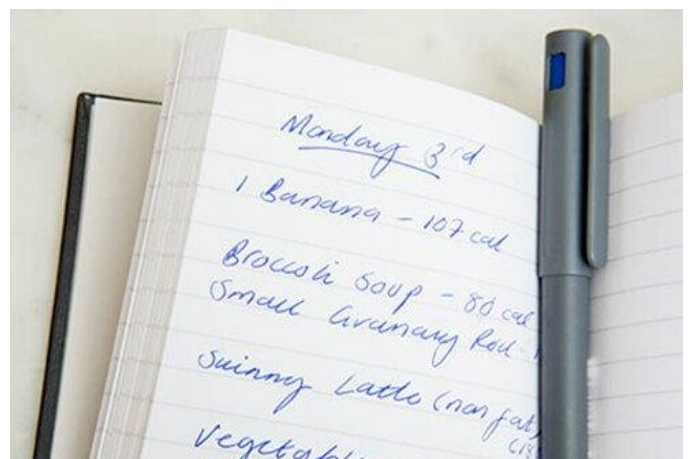 Monday 3rd
1 Banana - 107 cal
Broccoli Soup - 80 cal
Small Granary Roll -
Skinny Latte (non fat)
Vegetabl